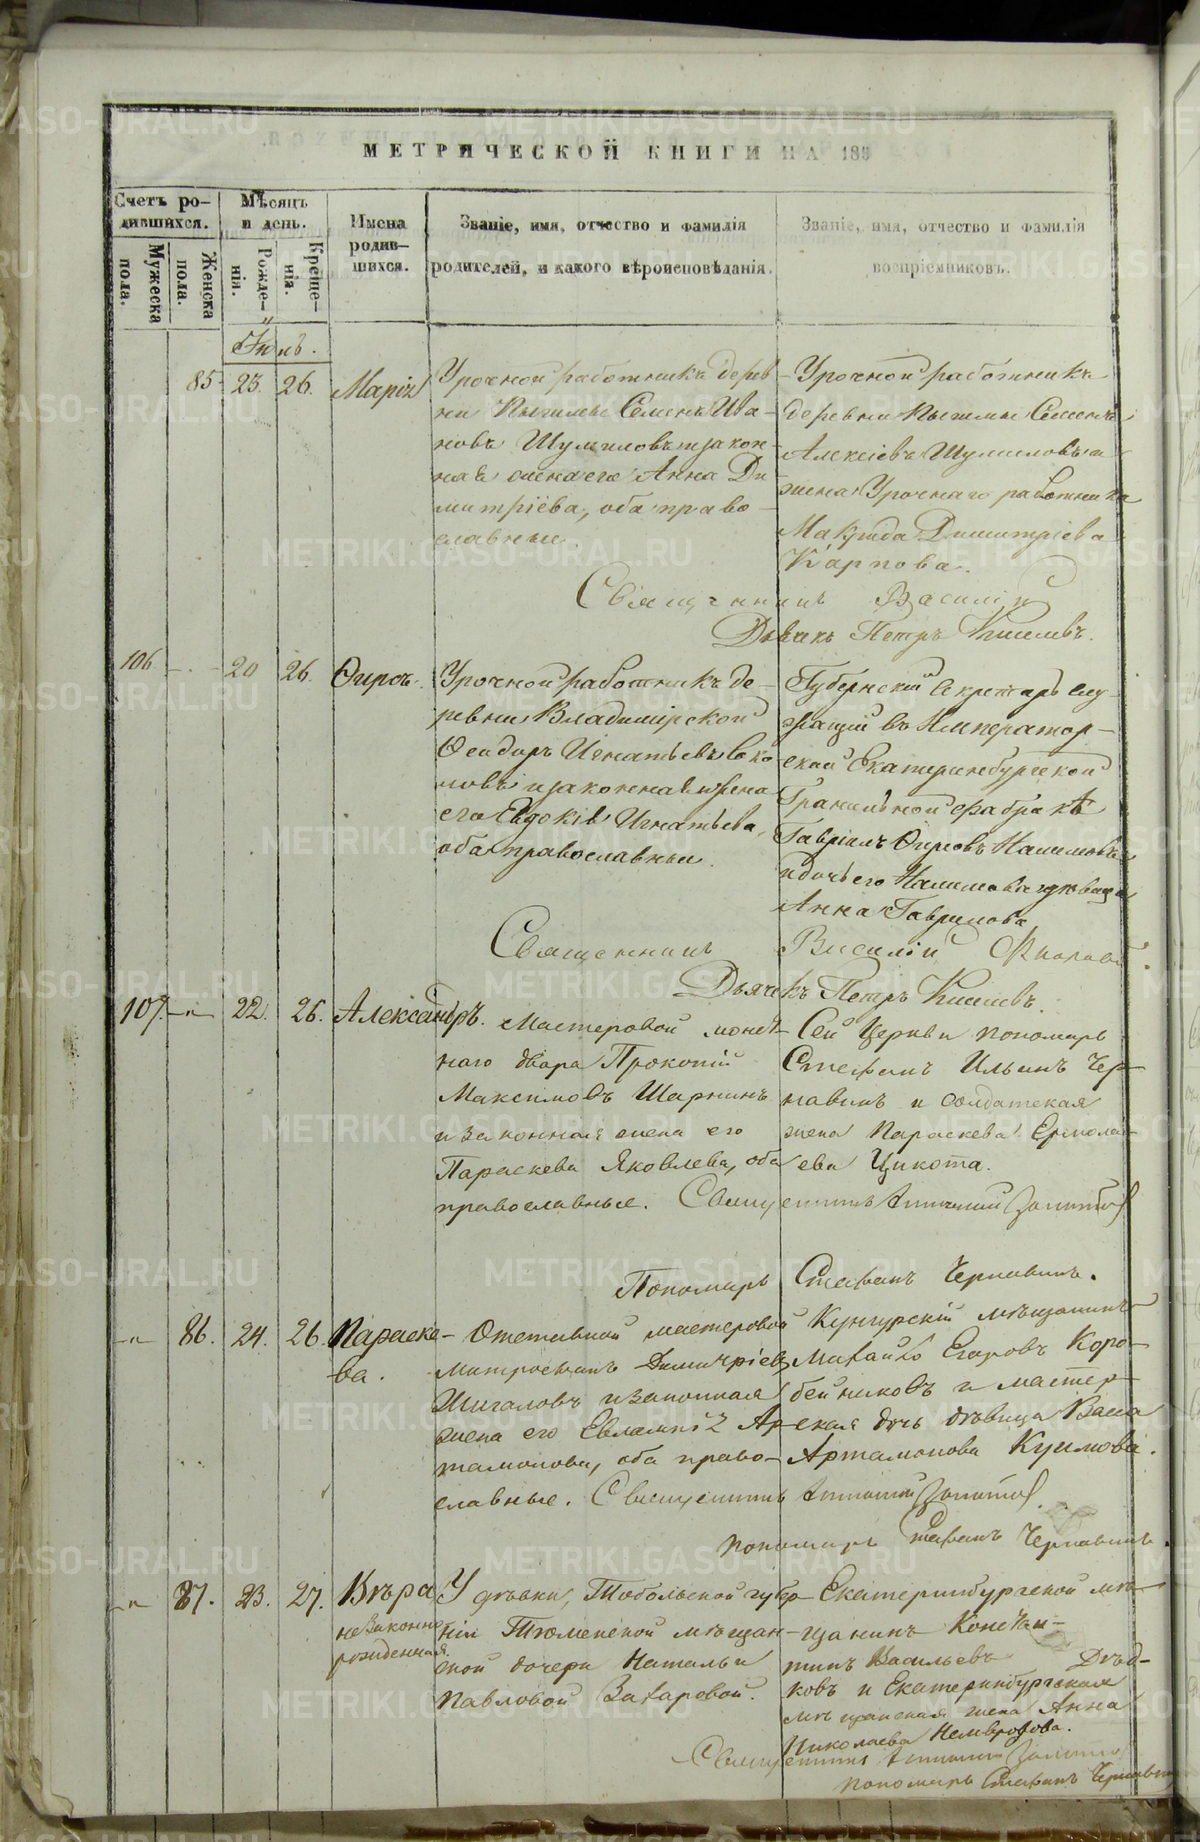 МЕТРИЧЕСКОЙ КНИГИ НА 185
Счетъ ро-
дившихся.
Мужеска
пола.
Женска
пола.
Мѣсяцъ
и день.
Рожде-
нія.
Креще-
нія.
Имена
родив-
шихся.
Званіе, имя, отчество и фамилія
родителей, и какого вѣроисповѣданія.
Званіе, имя, отчество и фамилія
воспріемниковъ.
85 23. 26. Марія
Урочной работникъ дерев-
ни Пышмы Семенъ Ива-
новъ Шумиловъ и закон-
ная жена его Анна Ди
митріева, оба право-
славные.
Урочной работникъ
деревни Пышмы Семенъ
Алексіевъ Шумиловъ и
жена Урочнаго работника
Димитріева
Карпова.
Священникъ Василій
Дьячекъ Петръ Киселевъ.
106 20 26. Ѳирсъ.
Урочной работникъ де-
ревни Владимірской
Ѳеодоръ Игнатьевъ Соко
ловъ и законная жена
его Евдокія Игнатьева,
оба православныи.
Губернскій Секретарь слу
жащій въ Император-
ской Екатеринбургской
Гранильной фабрикѣ
Гавріилъ Ѳирсовъ Налимовъ
и дочь его Налимова дѣвица
Анна Гаврилова
Священникъ Василій
Дьячекъ Петръ Киселевъ.
107. -"- 22. 26. Александръ.
Мастеровой монет-
наго двора Прокопій
Максимовъ Шарнинъ
и законная жена его
Параскева Яковлева, оба
православные.
Сей Церкви пономарь
Стефанъ Ильинъ Чер-
навинъ и солдатская
жена Параскева Ермола-
ева Цикота.
Священникъ
Пономарь Стефанъ Чернавинъ.
-"- 86. 24. 26. Параске-
ва.
Отставной мастеровой
Митрофанъ Димитріевъ
Шигаловъ и законная
жена его Евлампія Ар-
тамонова, оба право-
славные.
Кунгурскій мѣщанинъ
Михайло Егоровъ Коро-
бейниковъ и мастер-
ская дочь дѣвица Васса
Артамонова Куимова.
Священникъ
пономарь Стефанъ Чернавинъ.
-"- 87. 23. 27. Вѣра
незаконно
рожденная.
У дѣвки, Тобольской губер-
ніи Тюменской мѣщан-
ской дочери Натальи
Павловой Захаровой.
Екатеринбургской мѣ-
щанинъ Констан-
тинъ Васильевъ Дѣд-
ковъ и Екатеринбургская
мѣщанская жена Анна
Николаева
Священникъ
пономарь Стефанъ Чернавинъ
METRIKI.GASO-URAL.RU